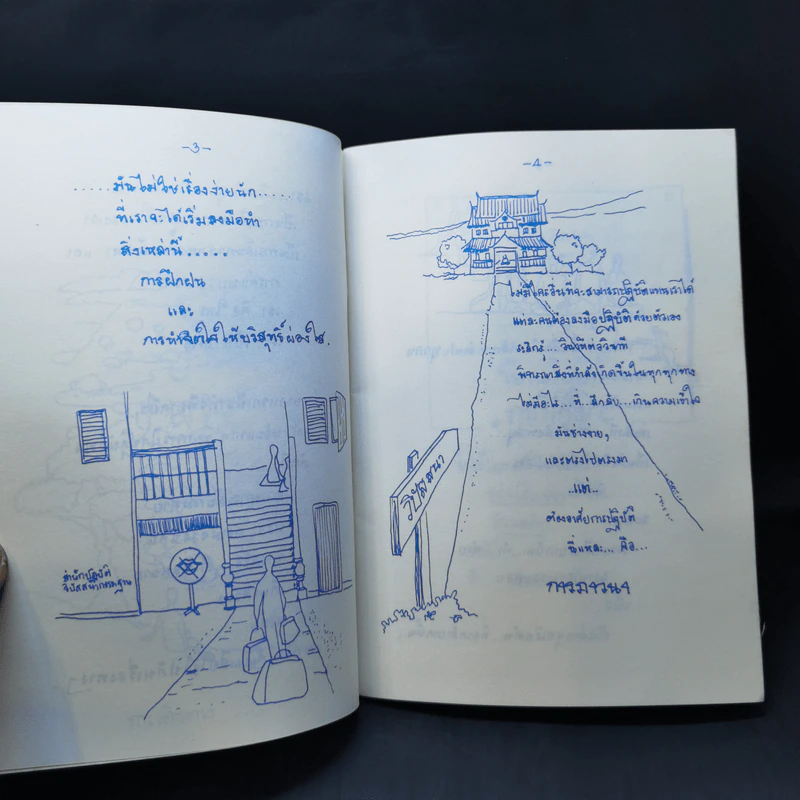 -3-
.....มันไม่ใช่เรื่องง่ายนัก.....
ที่เราจะได้เริ่มลงมือทำ
สิ่งเหล่านี้.....
การฝึกฝน
และ
การทำจิตใจให้บริสุทธิ์ผ่องใส.
สำนักปฏิบัติ
วิปัสสนากรรมฐาน
-4-
ไม่มีใครอื่นที่จะสามารถปฏิบัติแทนเราได้
แต่ละคนต้องลงมือปฏิบัติด้วยตัวเอง
ระลึกรู้... วินาทีต่อวินาที
พิจารณาสิ่งที่กำลังเกิดขึ้นในทุกทุกทาง
ไม่มีอะไร...ที่...ลึกลับ...เกินความเข้าใจ
มันช่างง่าย,
และตรงไปตรงมา
..แต่..
ต้องอาศัยการปฏิบัติ
นี่แหละ... คือ...
การภาวนา
วิปัสสนา